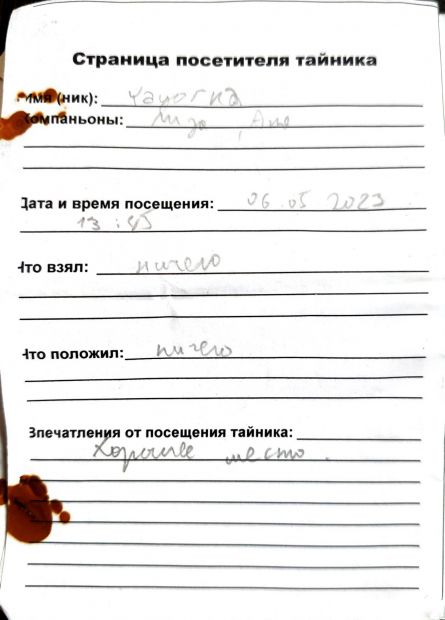 Страница посетителя тайника
Имя (ник):
Компаньоны: Лиза, Аня
Дата и время посещения: 06.05 2023
13:45
Что взял: ничего
Что положил: ничего
Впечатления от посещения тайника:
Хорошее место.